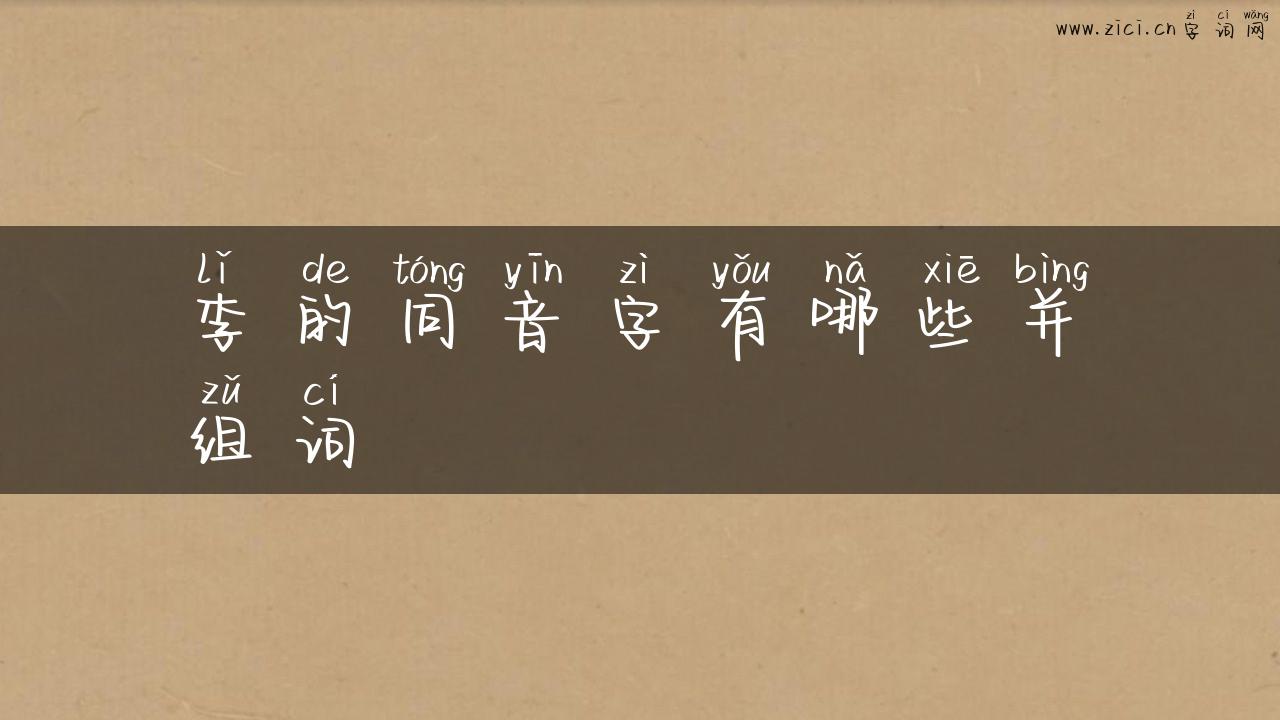 zì cí wǎng
www.zici.cn 字 词 网
lǐ de tóng yīn zì yǒu nǎ xiē bìng
李 的 同 音 字 有 哪 些 并
zǔ cí
组 词